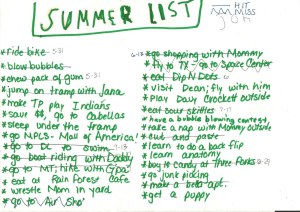 SUMMER LIST
HIT
MISS
*ride bike 5-31
*blow bubbles
*chew pack of gum 5-31
*jump on tramp with Jana
*make TP play Indians
*save $$, go to Cabellas
*sleep under the tramp
*go MPLS - Mall of America!
*go to DL to swim
*go boat riding with Daddy
*go to MT, hike with Gpa
*eat at Rain Forest Cafe
*wrestle Mom in yard
*go to Air Sho
*go shopping with Mommy
*fly to TX - go to Space Center
*eat Dip N Dots
*visit Dean; fly with him
*play Davy Crockett outside
*eat sour skittles
*have a bubble blowing contest
*take a nap with Mommy outside
*cut and paste
*learn to do a back flip
*learn anatomy
*buy it Candy at Three Forks
*go junk picking
*make a belt
*get a puppy